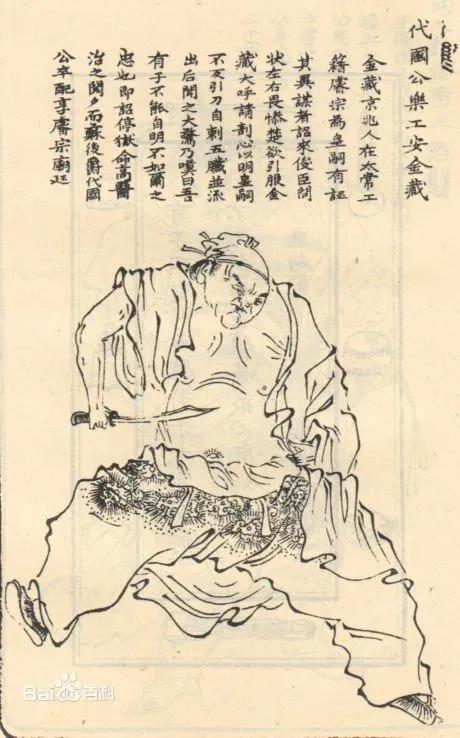 代國公樂工安金藏
金藏京兆人在太常工
籍睿宗為皇嗣有誣
其異謀者詔來俊臣問
狀左右畏慘楚欲引服金
藏大呼請剖心以明皇嗣
不反引刀自刺五臟並流
出后聞之大驚乃嘆曰吾
有子不能自明不如爾之
忠也即詔停獄命高醫
治之閱夕而蘇後爵代國
公卒配享睿宗廟廷
Bai百科